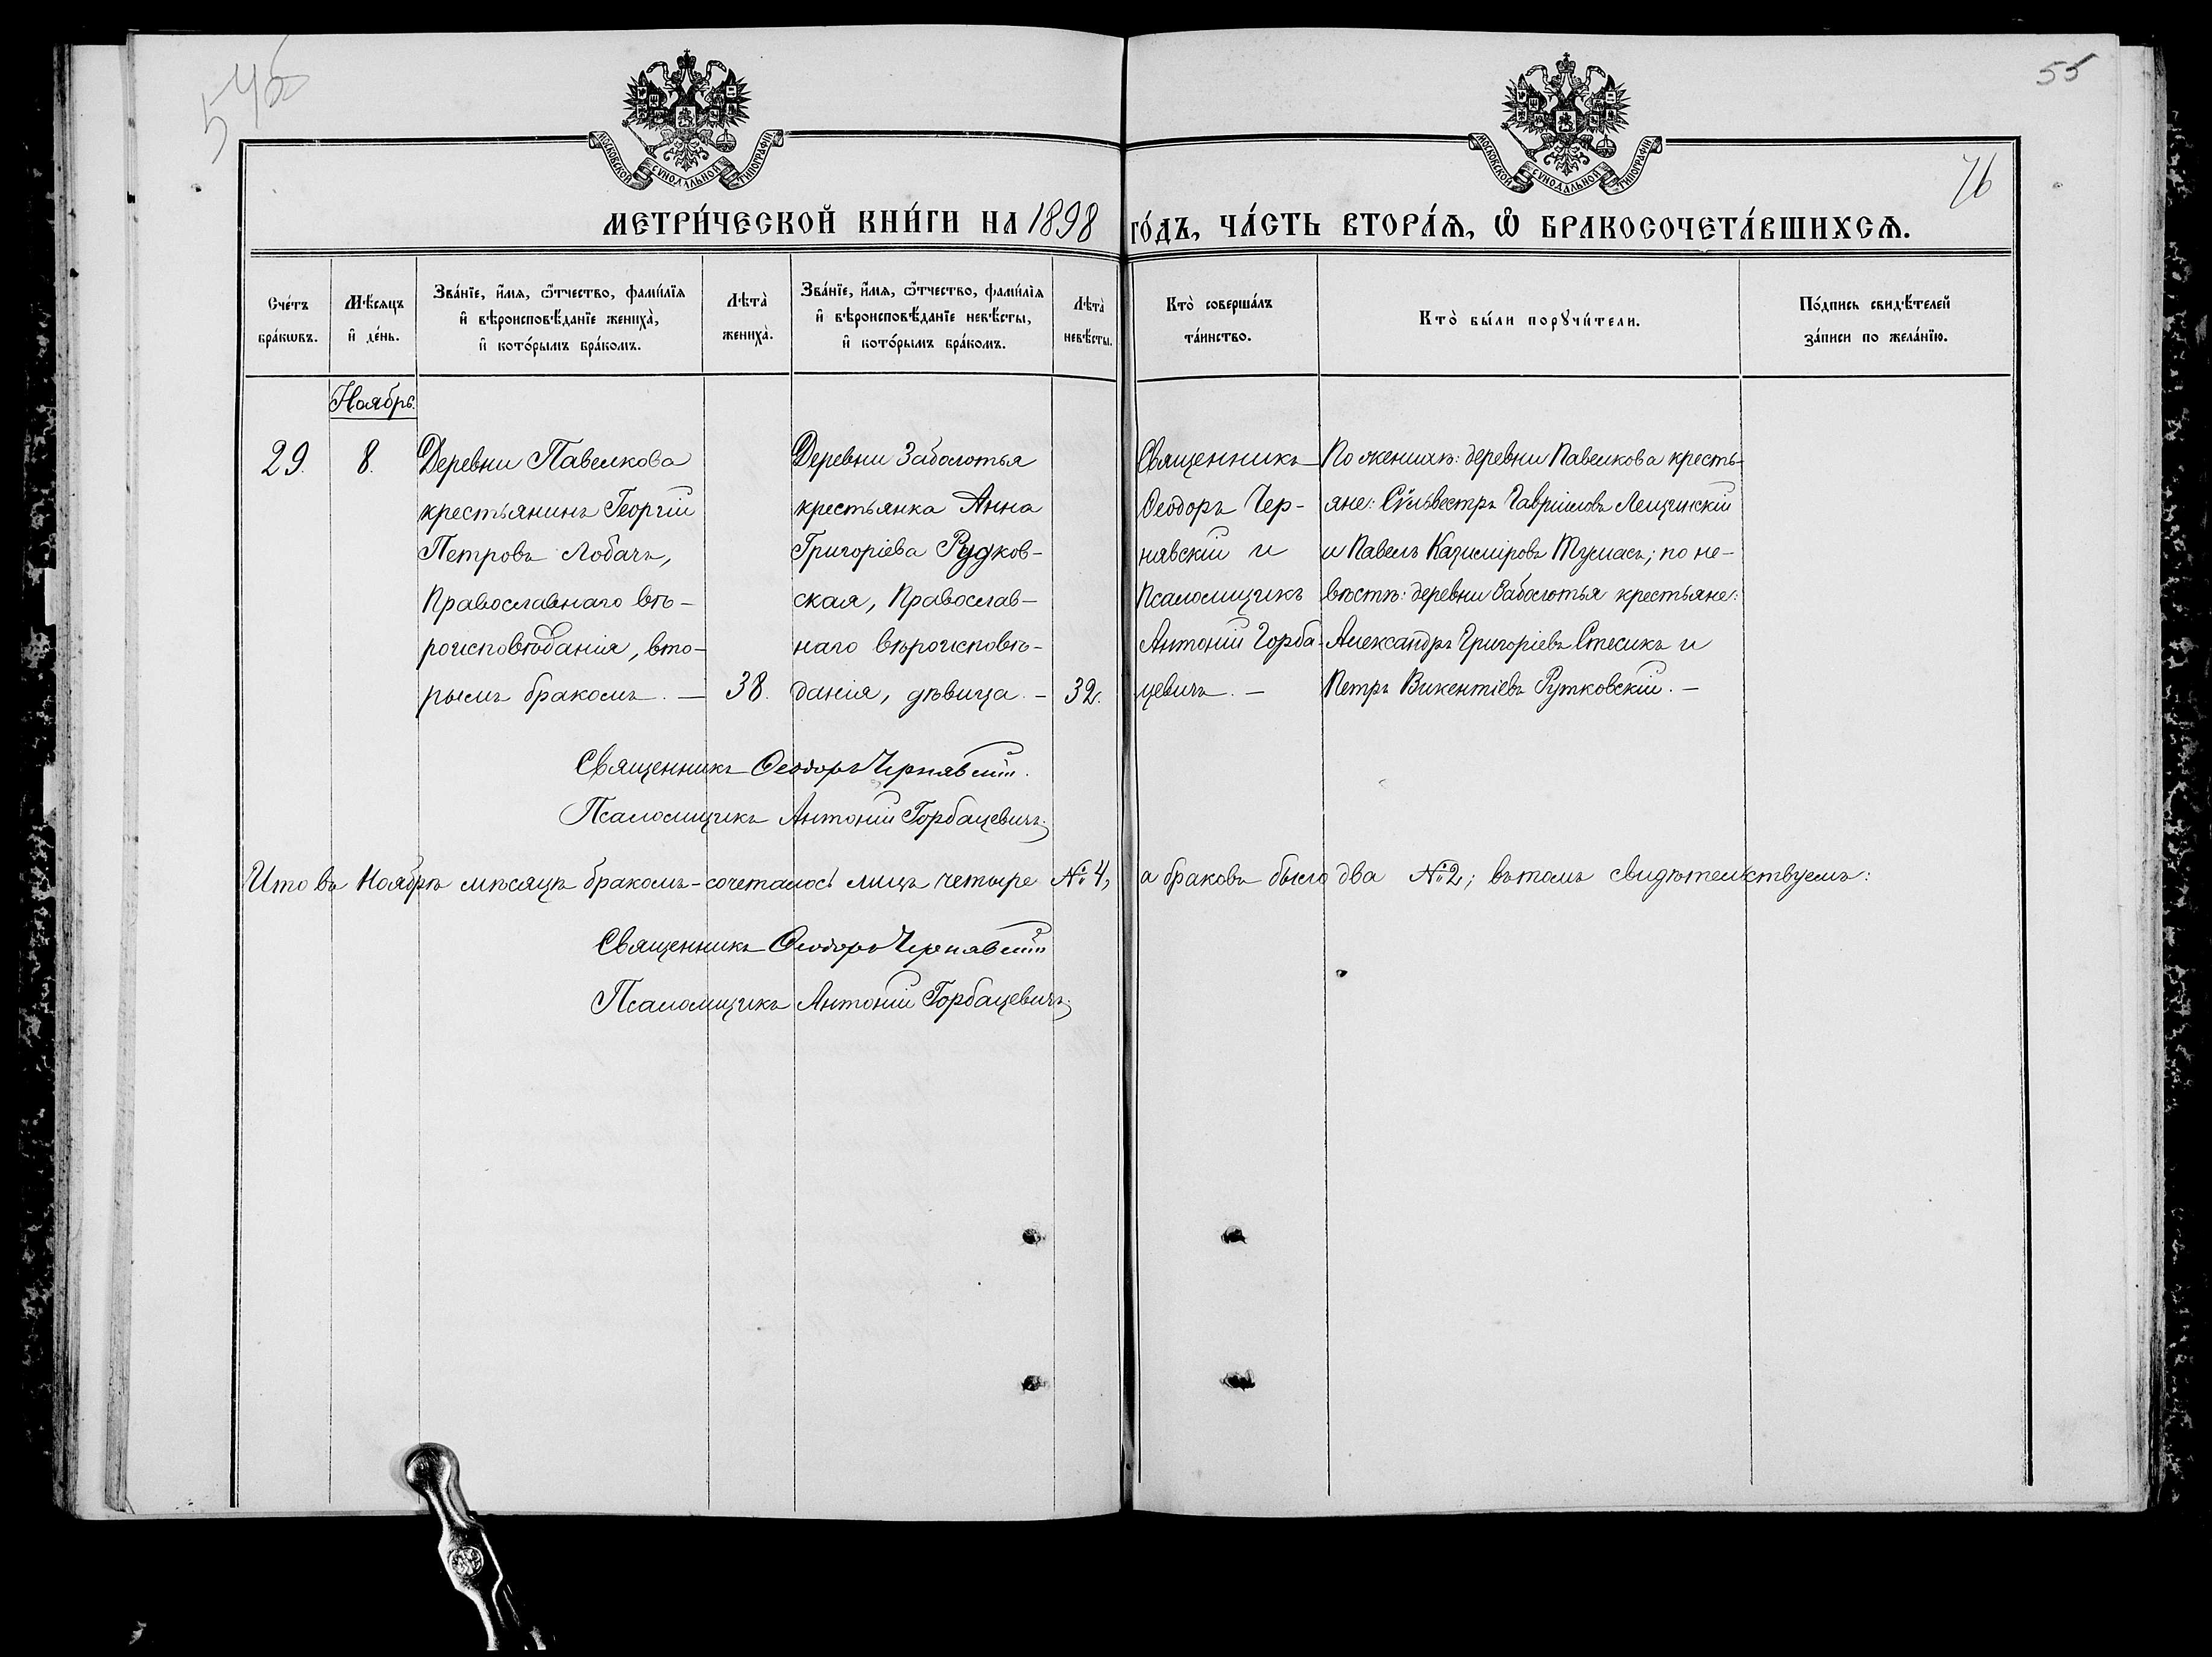 546
55
76
МОСКОВСКОЙ СѴНОДАЛЬНОЙ ТИПОГРАФІИ
МОСКОВСКОЙ СѴНОДАЛЬНОЙ ТИПОГРАФІИ
МЕТРИ́ЧЕСКОЙ КНИ́ГИ НА 1898 ГО́ДЪ, ЧА́СТЬ ВТОРА́Ѧ, Ѽ БРАКОСОЧЕТА́ВШИХСѦ.
Сче́тъ
бра́кѡвъ.
Мѣ́сяцъ
и҆ де́нь.
Зва́нїе, и҆́мѧ, ѻ҆́тчество, фами́лїѧ
и҆ вѣроисповѣ́данїе жениха̀,
и҆ кото́рымъ бра́комъ.
Лѣта̀
жениха̀.
Зва́нїе, и҆́мѧ, ѻ҆́тчество, фами́лїѧ
и҆ вѣроисповѣ́данїе невѣ́сты,
и҆ кото́рымъ бра́комъ.
Лѣта̀
невѣ́сты.
Кто̀ соверша́лъ
та́инство.
Кто̀ бы́ли порꙋчи́тели.
По́дпись свидѣ́телей
за́писи по жела́нїю.
Ноябрь.
29.
8.
Деревни Павелкова
крестьянинъ Георгій
Петровъ Лобачъ,
Православнаго вѣ-
роисповѣданія, вто-
рымъ бракомъ. —
38.
Деревни Заболотья
крестьянка Анна
Григоріева Рудков-
ская, Православ-
наго вѣроисповѣ-
данія, дѣвица. —
32.
Священникъ
Ѳеодоръ Чер-
нявскій и
Псаломщикъ
Антоній Горба-
цевичъ. —
По женихѣ: деревни Павелкова кресть-
яне: Сѵльвестръ Гавріиловъ Лещинскій
и Павелъ Казиміровъ Тумасъ; по не-
вѣстѣ: деревни Заболотья крестьяне:
Александръ Григоріевъ Стесикъ и
Петръ Викентіевъ Рутковскій. —
Священникъ Ѳеодоръ Чернявскій.
Псаломщикъ Антоній Горбацевичъ.
Что въ Ноябрѣ мѣсяцѣ бракомъ-сочеталось лицъ четыре №4, а браковъ было два №2; въ томъ свидѣтельствуемъ:
Священникъ Ѳеодоръ Чернявскій
Псаломщикъ Антоній Горбацевичъ.